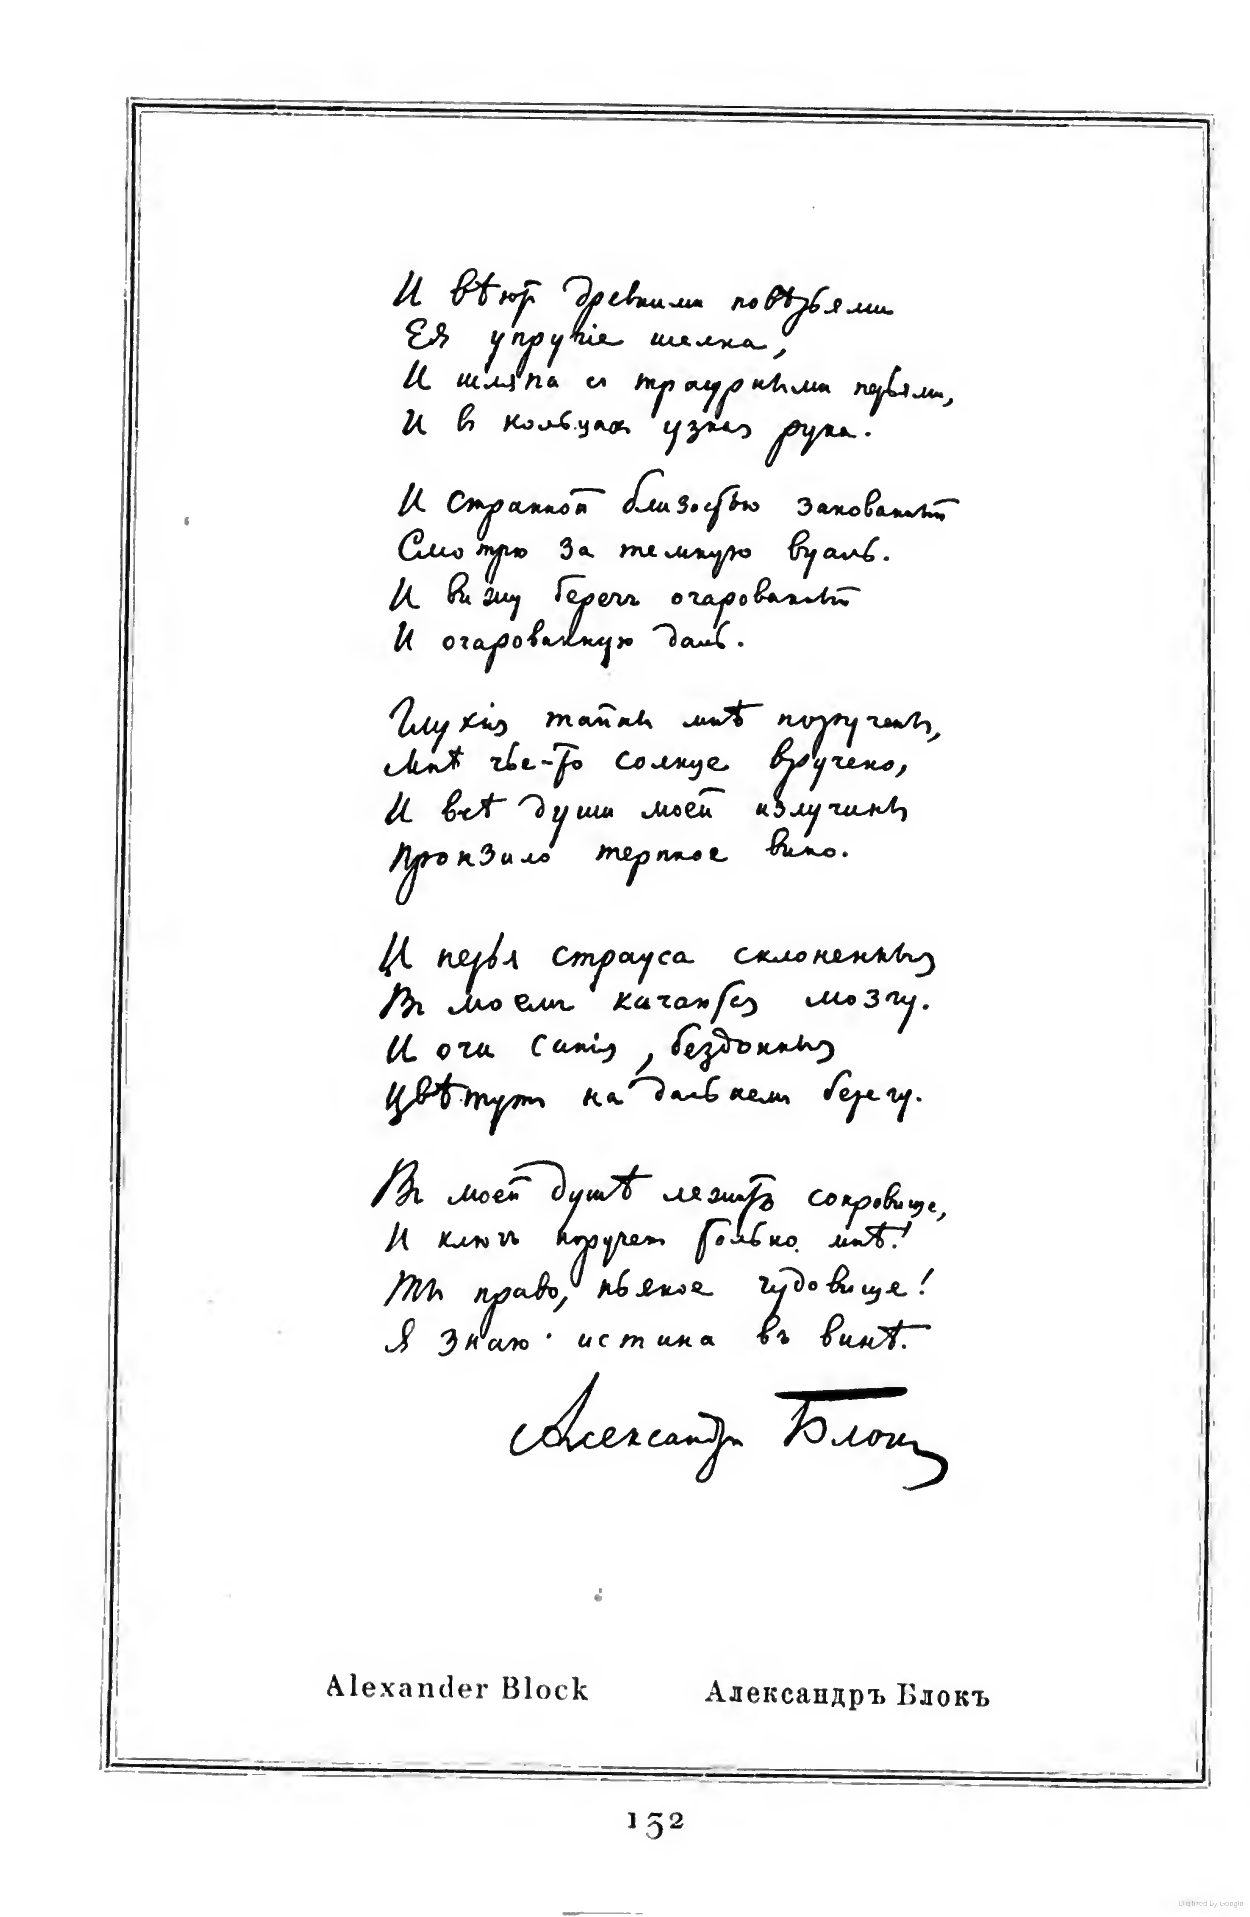 И вѣют древними повѣрьями
Ея упругіе шелка,
И шляпа съ траурными перьями,
И въ кольцахъ узкая рука.
И странной близостью закованный
Смотрю за темную вуаль.
И вижу берегъ очарованный
И очарованную даль.
Глухія тайны мнѣ поручены,
Мнѣ чье-то солнце вручено,
И всѣ души моей излучины
Пронзило терпкое вино.
И перья страуса склоненныя
Въ моемъ качаются мозгу.
И очи синія, бездонныя
Цвѣтутъ на дальнемъ берегу.
Въ моей душѣ лежитъ сокровище,
И ключъ порученъ только мнѣ!
Ты право, пьяное чудовище!
Я знаю · истина въ винѣ.
Александръ Блокъ
Alexander Block Александръ Блокъ
132
Digitized by Google